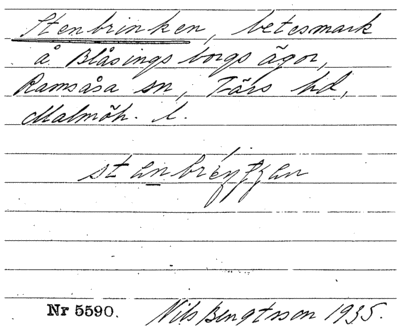 Stenbrinken, betesmark
å Blåsingsborgs ägor,
Ramsåsa sn, Färs hd,
Malmöh. l.
Nr 5590. Nils Bengtsson 1935.